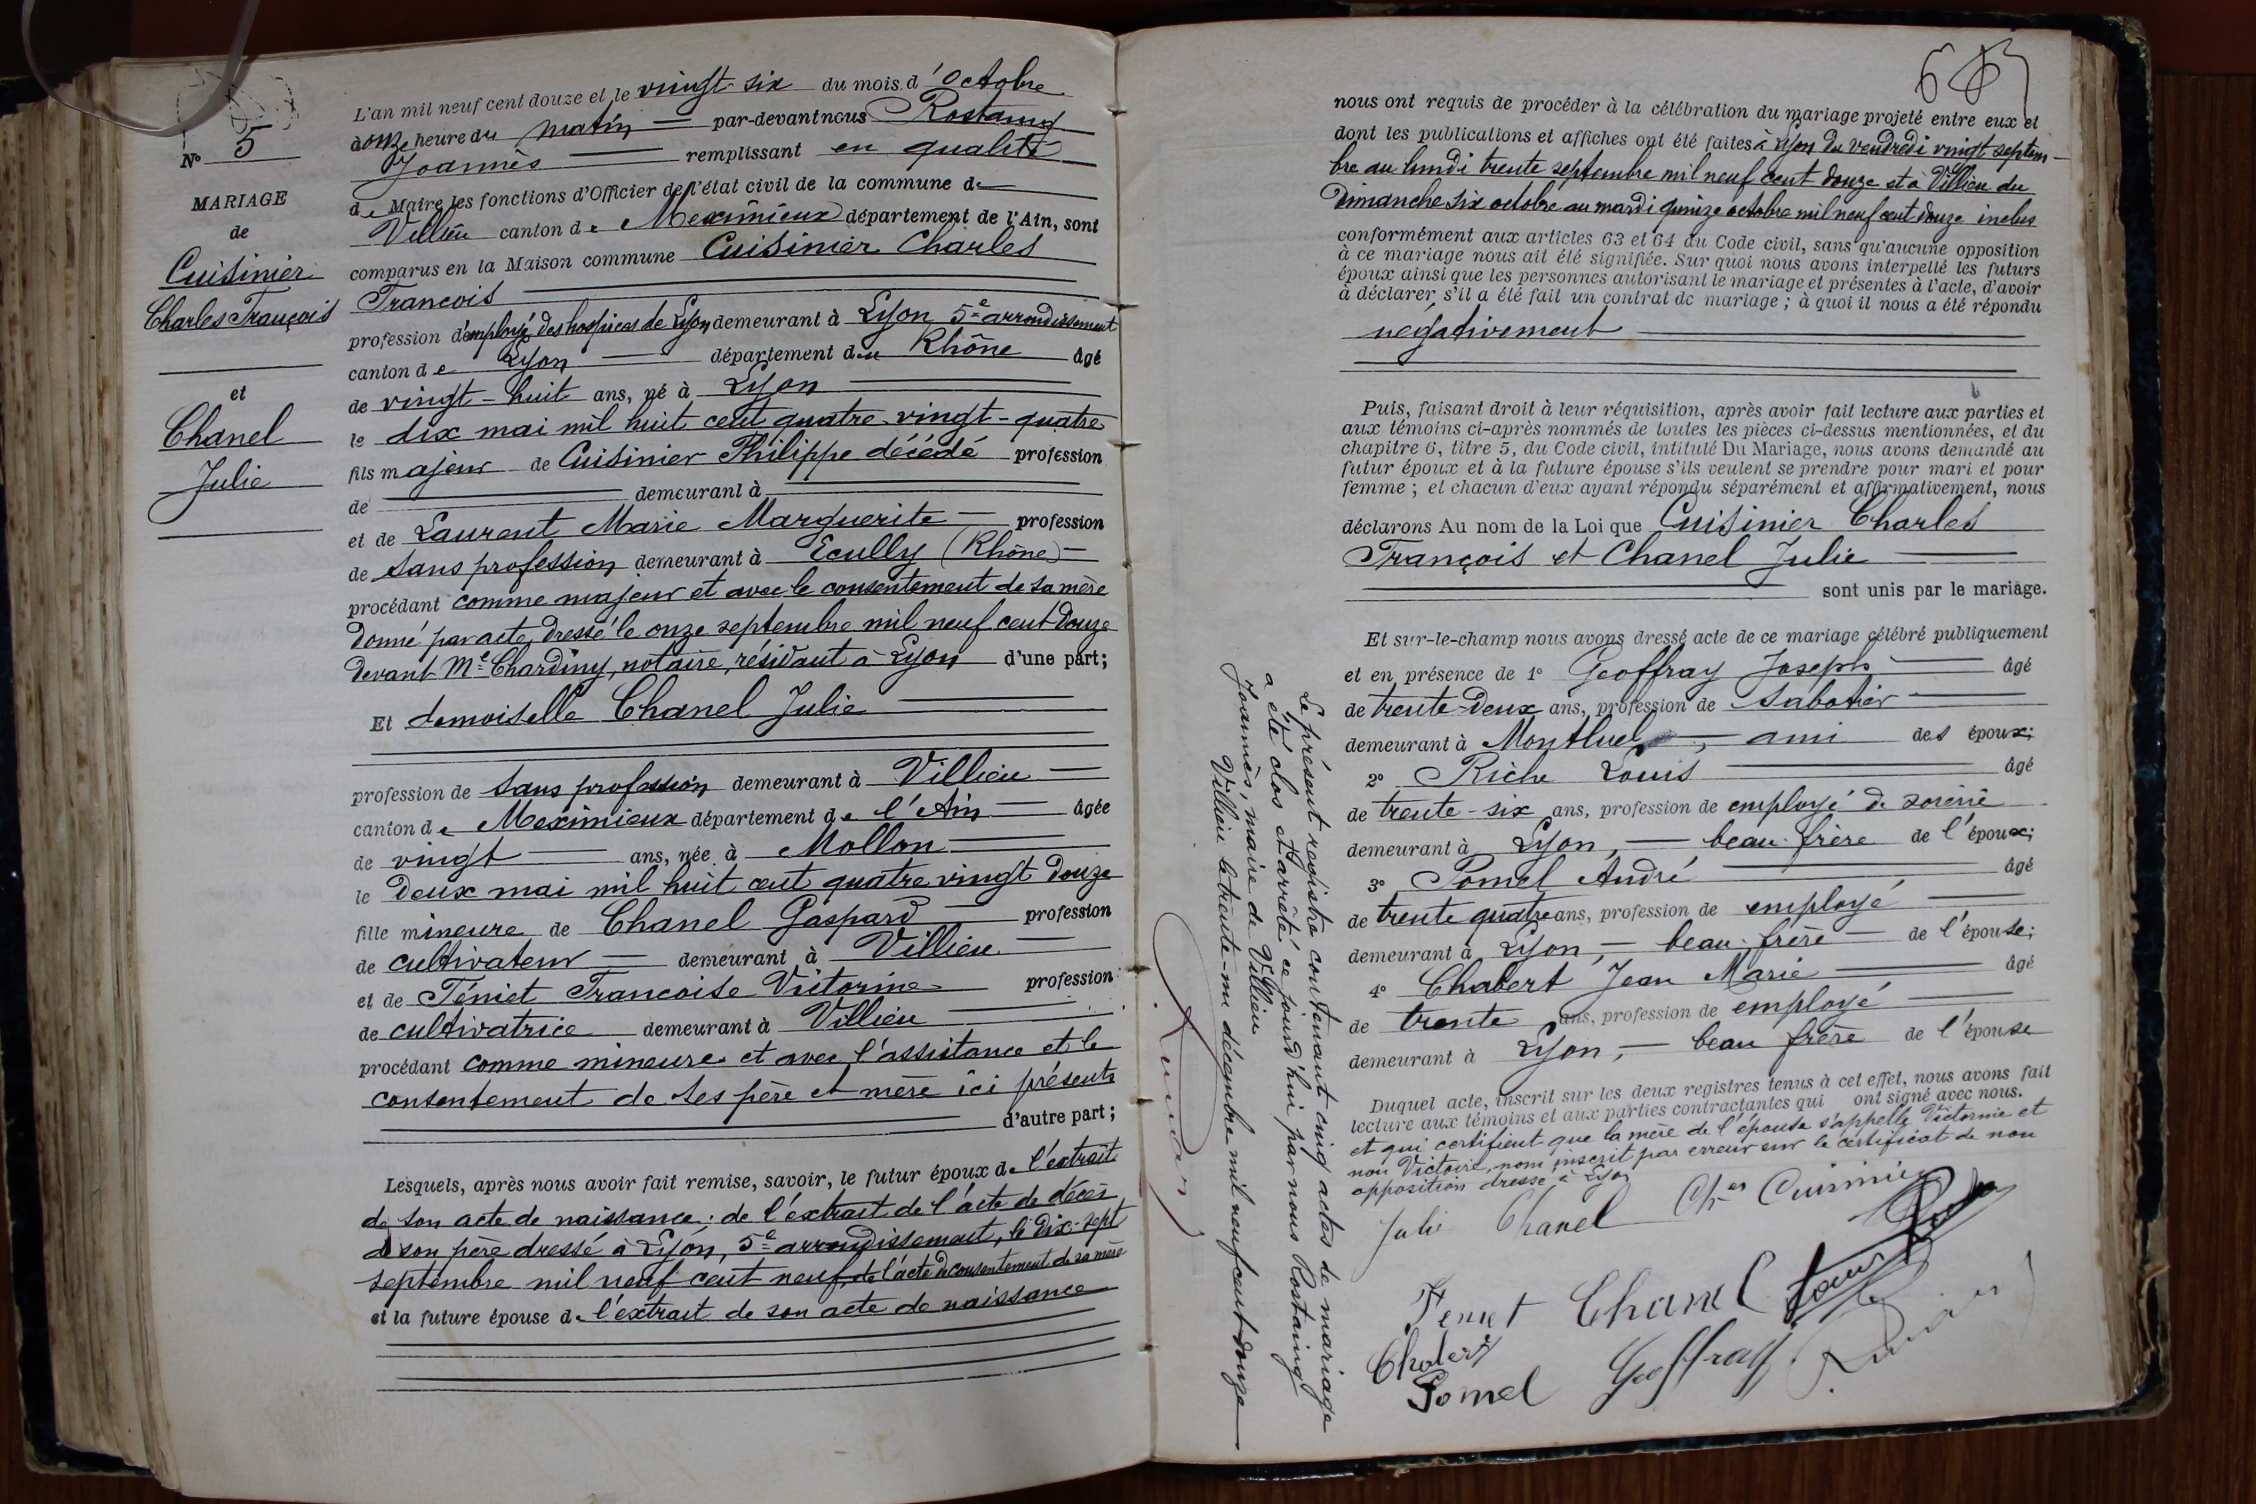 N° 5
MARIAGE
de
Cuisinier
Charles François
et
Chanel
Julie
L'an mil neuf cent douze et le vingt-six du mois d'Octobre
à onze heure du matin par-devant nous Rostaing
Joannès remplissant en qualité
de Maire les fonctions d'Officier de l'état civil de la commune de
Villieu canton de Meximieux département de l'Ain, sont
comparus en la Maison commune Cuisinier Charles
Francois
profession d'employé des hospices de Lyon demeurant à Lyon 5e arrondissement
canton de Lyon département du Rhône âgé
de vingt-huit ans, né à Lyon
le dix mai mil huit cent quatre-vingt-quatre
fils majeur de Cuisinier Philippe décédé profession
de demeurant à
et de Laurent Marie Marguerite profession
de sans profession demeurant à Ecully (Rhône)
procédant comme majeur et avec le consentement de sa mère
donné par acte dressé le onze septembre mil neuf cent douze
devant Me Chardiny, notaire, résidant à Lyon d'une part;
Et demoiselle Chanel Julie
profession de sans profession demeurant à Villieu
canton de Meximieux département de l'Ain âgée
de vingt ans, née à Mollon
le deux mai mil huit cent quatre vingt douze
fille mineure de Chanel Gaspard profession
de cultivateur demeurant à Villieu
et de Téniet Francoise Victorine profession
de cultivatrice demeurant à Villieu
procédant comme mineure et avec l'assistance et le
consentement de ses père et mère ici présents
d'autre part;
Lesquels, après nous avoir fait remise, savoir, le futur époux de l'extrait
de son acte de naissance; de l'extrait de l'acte de décès
de son père dressé à Lyon, 5e arrondissement, le dix-sept
septembre mil neuf cent neuf, de l'acte de consentement de sa mère
et la future épouse de l'extrait de son acte de naissance
nous ont requis de procéder à la célébration du mariage projeté entre eux et
dont les publications et affiches ont été faites à Lyon du vendredi vingt septem-
bre au lundi trente septembre mil neuf cent douze et à Villieu du
Dimanche six octobre au mardi quinze octobre mil neuf cent douze inclus
conformément aux articles 63 et 64 du Code civil, sans qu'aucune opposition
à ce mariage nous ait été signifiée. Sur quoi nous avons interpellé les futurs
époux ainsi que les personnes autorisant le mariage et présentes à l'acte, d'avoir
à déclarer s'il a été fait un contrat de mariage; à quoi il nous a été répondu
négativement
Puis, faisant droit à leur réquisition, après avoir fait lecture aux parties et
aux témoins ci-après nommés de toutes les pièces ci-dessus mentionnées, et du
chapitre 6, titre 5, du Code civil, intitulé Du Mariage, nous avons demandé au
futur époux et à la future épouse s'ils veulent se prendre pour mari et pour
femme; et chacun d'eux ayant répondu séparément et affirmativement, nous
déclarons Au nom de la Loi que Cuisinier Charles
François et Chanel Julie
sont unis par le mariage.
Et sur-le-champ nous avons dressé acte de ce mariage célébré publiquement
et en présence de 1° Geoffray Joseph âgé
de trente-deux ans, profession de sabotier
demeurant à Montluel, ami des époux;
2° Riche Louis âgé
de trente-six ans, profession de employé de soierie
demeurant à Lyon, beau-frère de l'époux;
3° Pomel André âgé
de trente quatre ans, profession de employé
demeurant à Lyon, beau-frère de l'épouse;
4° Chabert Jean Marie âgé
de trente ans, profession de employé
demeurant à Lyon, beau frère de l'épouse
Duquel acte, inscrit sur les deux registres tenus à cet effet, nous avons fait
lecture aux témoins et aux parties contractantes qui ont signé avec nous.
et qui certifient que la mère de l'épouse s'appelle Victorine et
non Victoire, nom inscrit par erreur sur le certificat de non
opposition dressé à Lyon
Julie Chanel Ch.es Cuisinier
Teniet Chanel
Chabert
Pomel Geoffray
Le présent registre contenant cinq actes de mariage
a été clos et arrêté ce jourd'hui par nous Rostaing
Joannès, maire de Villieu
Villieu le trente-un décembre mil neuf cent douze